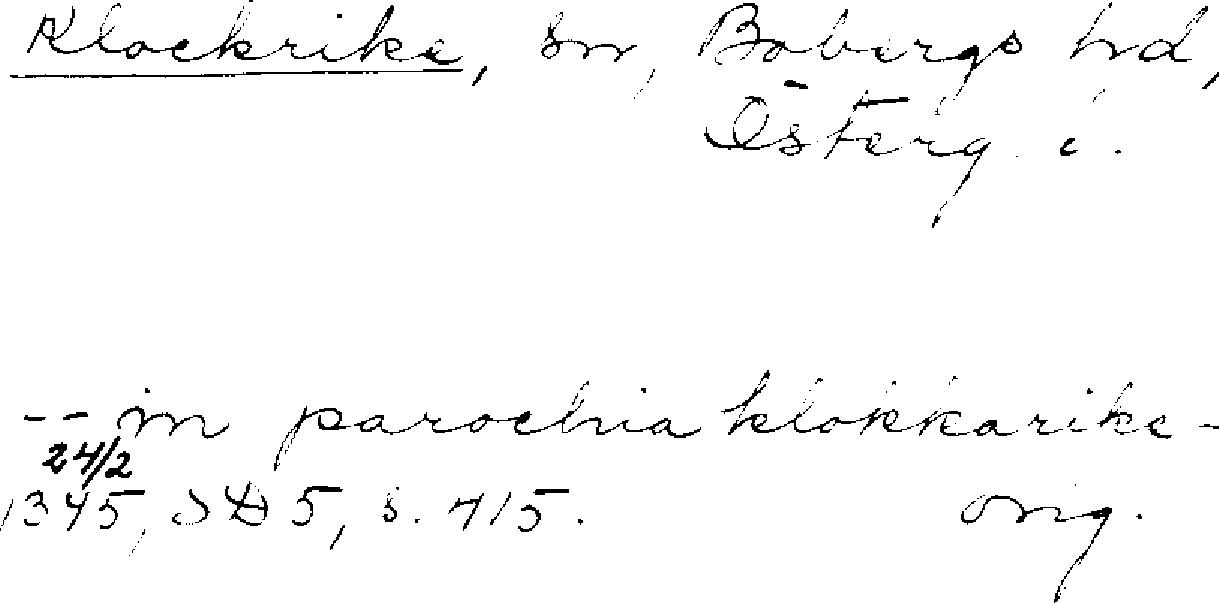 Klockrike, sn, Bobergs hd,
Österg. l.
-- in parochia klokkarike -
24/2
1345, SD 5, s. 415.
orig.